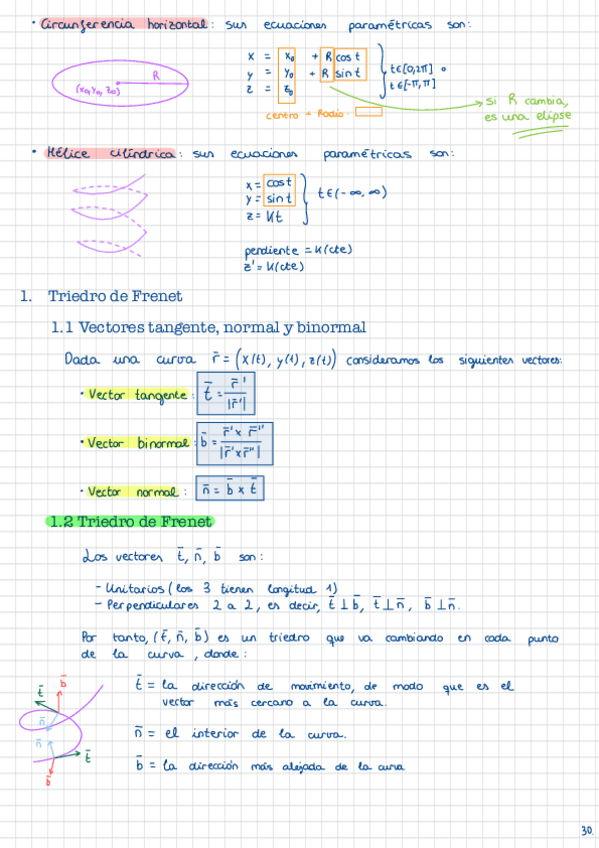 · Circunferencia horizontal: sus ecuaciones paramétricas son:
x = x₀ + R cos t
y = y₀ + R sin t
z = z₀
t∈[0,2π] o
t∈[-π,π]
R
(x₀,y₀,z₀)
centro + Radio ·
→ si R cambia,
es una elipse
· Hélice cilíndrica: sus ecuaciones paramétricas son:
x = cos t
y = sin t
z = Kt
t∈(-∞,∞)
pendiente = K(cte)
z' = K(cte)
1. Triedro de Frenet
1.1 Vectores tangente, normal y binormal
Dada una curva r̄ = (x(t), y(t), z(t)) consideramos los siguientes vectores:
· Vector tangente: t̄ = r̄' / |r̄'|
· Vector binormal: b̄ = r̄' x r̄'' / |r̄' x r̄''|
· Vector normal: n̄ = b̄ x t̄
1.2 Triedro de Frenet
Los vectores t̄, n̄, b̄ son:
- Unitarios (los 3 tienen longitud 1)
- Perpendiculares 2 a 2, es decir, t̄ ⊥ b̄, t̄ ⊥ n̄, b̄ ⊥ n̄.
Por tanto, (t̄, n̄, b̄) es un triedro que va cambiando en cada punto
de la curva, donde:
t̄ = la dirección de movimiento, de modo que es el
vector más cercano a la curva.
n̄ = el interior de la curva.
b̄ = la dirección más alejada de la curva
t̄ b̄
n̄
n̄
t̄
b̄
30.